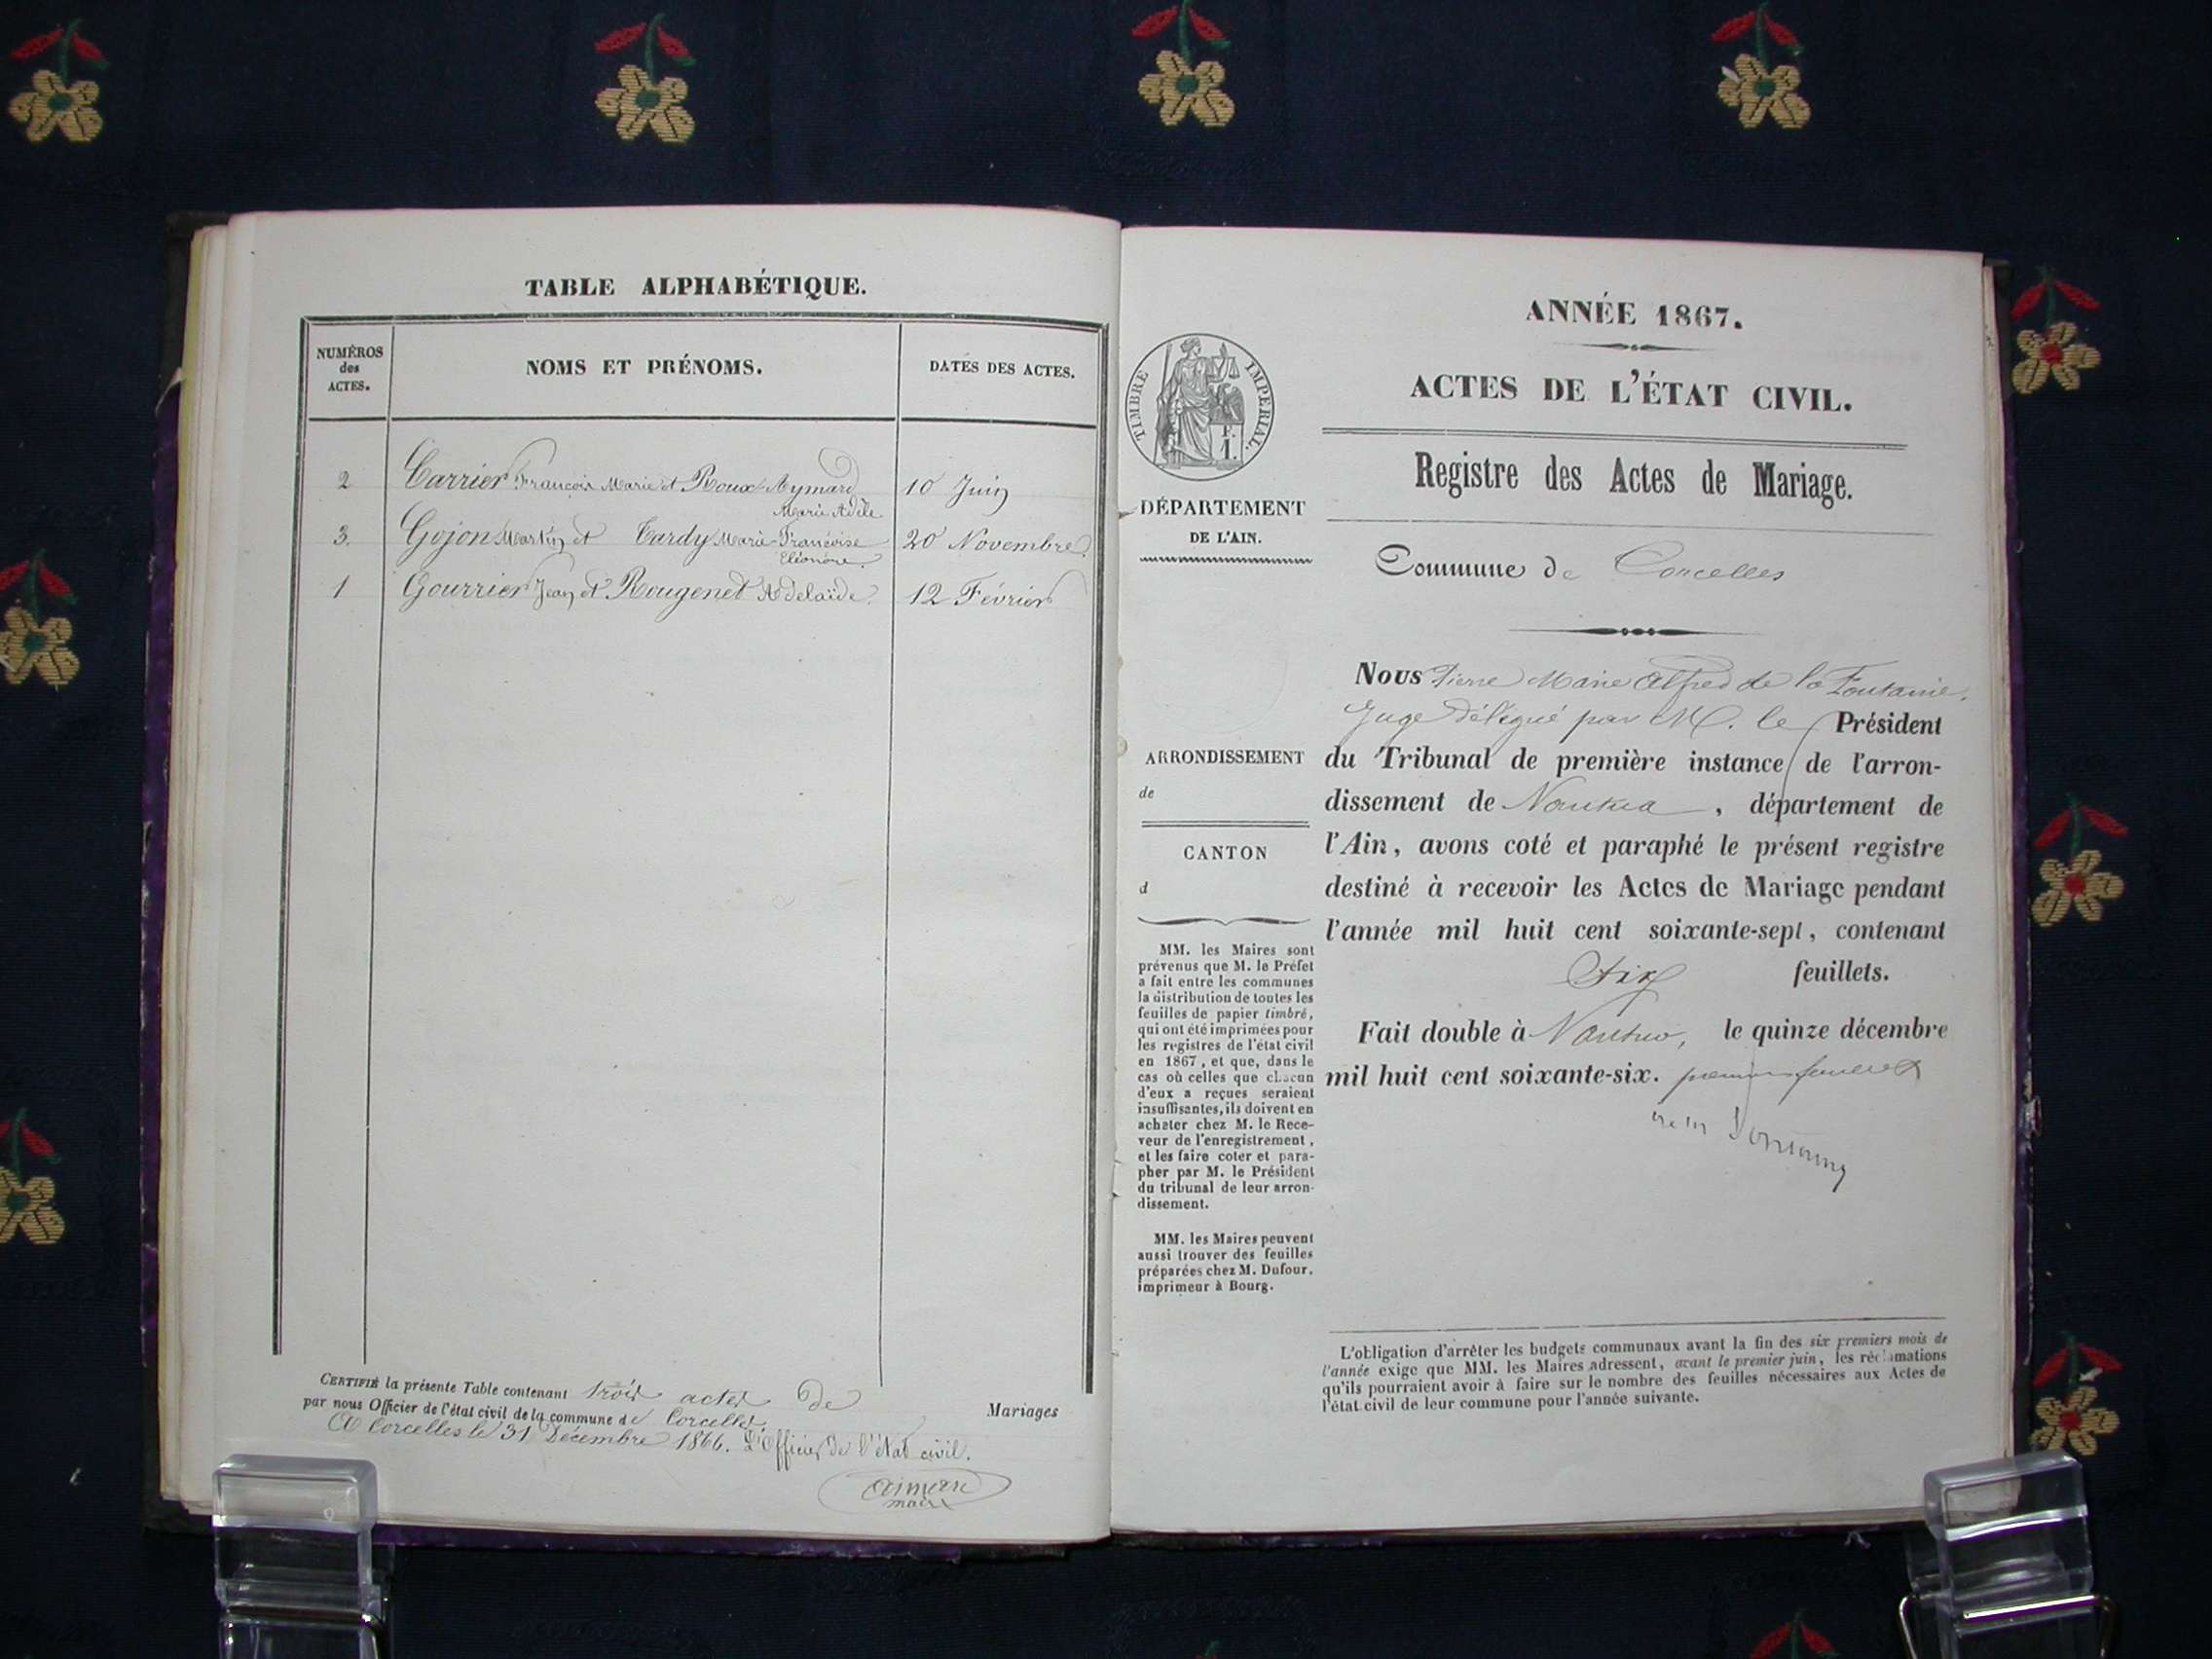 TABLE ALPHABÉTIQUE.
NUMÉROS des ACTES. NOMS ET PRÉNOMS. DATES DES ACTES.
2 Carrier François Marie et Roux Aymard Marie Adèle 10 Juin
3. Gojon Martin et Tardy Marie-Françoise Eléonore. 20 Novembre
1 Gourrier Jean et Rougenet Adelaïde. 12 Février
CERTIFIÉ la présente Table contenant trois actes de Mariages
par nous Officier de l'état civil de la commune de Corcelles.
A Corcelles le 31 Décembre 1866. L'Officier de l'état civil.
maire
TIMBRE IMPERIAL.
F.
1.
DÉPARTEMENT
DE L'AIN.
ARRONDISSEMENT
de
CANTON
d
MM. les Maires sont
prévenus que M. le Préfet
a fait entre les communes
la distribution de toutes les
feuilles de papier timbré,
qui ont été imprimées pour
les registres de l'état civil
en 1867, et que, dans le
cas où celles que chacun
d'eux a reçues seraient
insuffisantes, ils doivent en
acheter chez M. le Rece-
veur de l'enregistrement,
et les faire coter et para-
pher par M. le Président
du tribunal de leur arron-
dissement.
MM. les Maires peuvent
aussi trouver des feuilles
préparées chez M. Dufour,
imprimeur à Bourg.
ANNÉE 1867.
ACTES DE L'ÉTAT CIVIL.
Registre des Actes de Mariage.
Commune de Corcelles
Nous Pierre Marie Alfred de la Fontaine,
Juge délégué par M. le Président
du Tribunal de première instance de l'arron-
dissement de Nantua, département de
l'Ain, avons coté et paraphé le présent registre
destiné à recevoir les Actes de Mariage pendant
l'année mil huit cent soixante-sept, contenant
six feuillets.
Fait double à Nantua, le quinze décembre
mil huit cent soixante-six. premier feuillet
L'obligation d'arrêter les budgets communaux avant la fin des six premiers mois de
l'année exige que MM. les Maires adressent, avant le premier juin, les réclamations
qu'ils pourraient avoir à faire sur le nombre des feuilles nécessaires aux Actes de
l'état civil de leur commune pour l'année suivante.